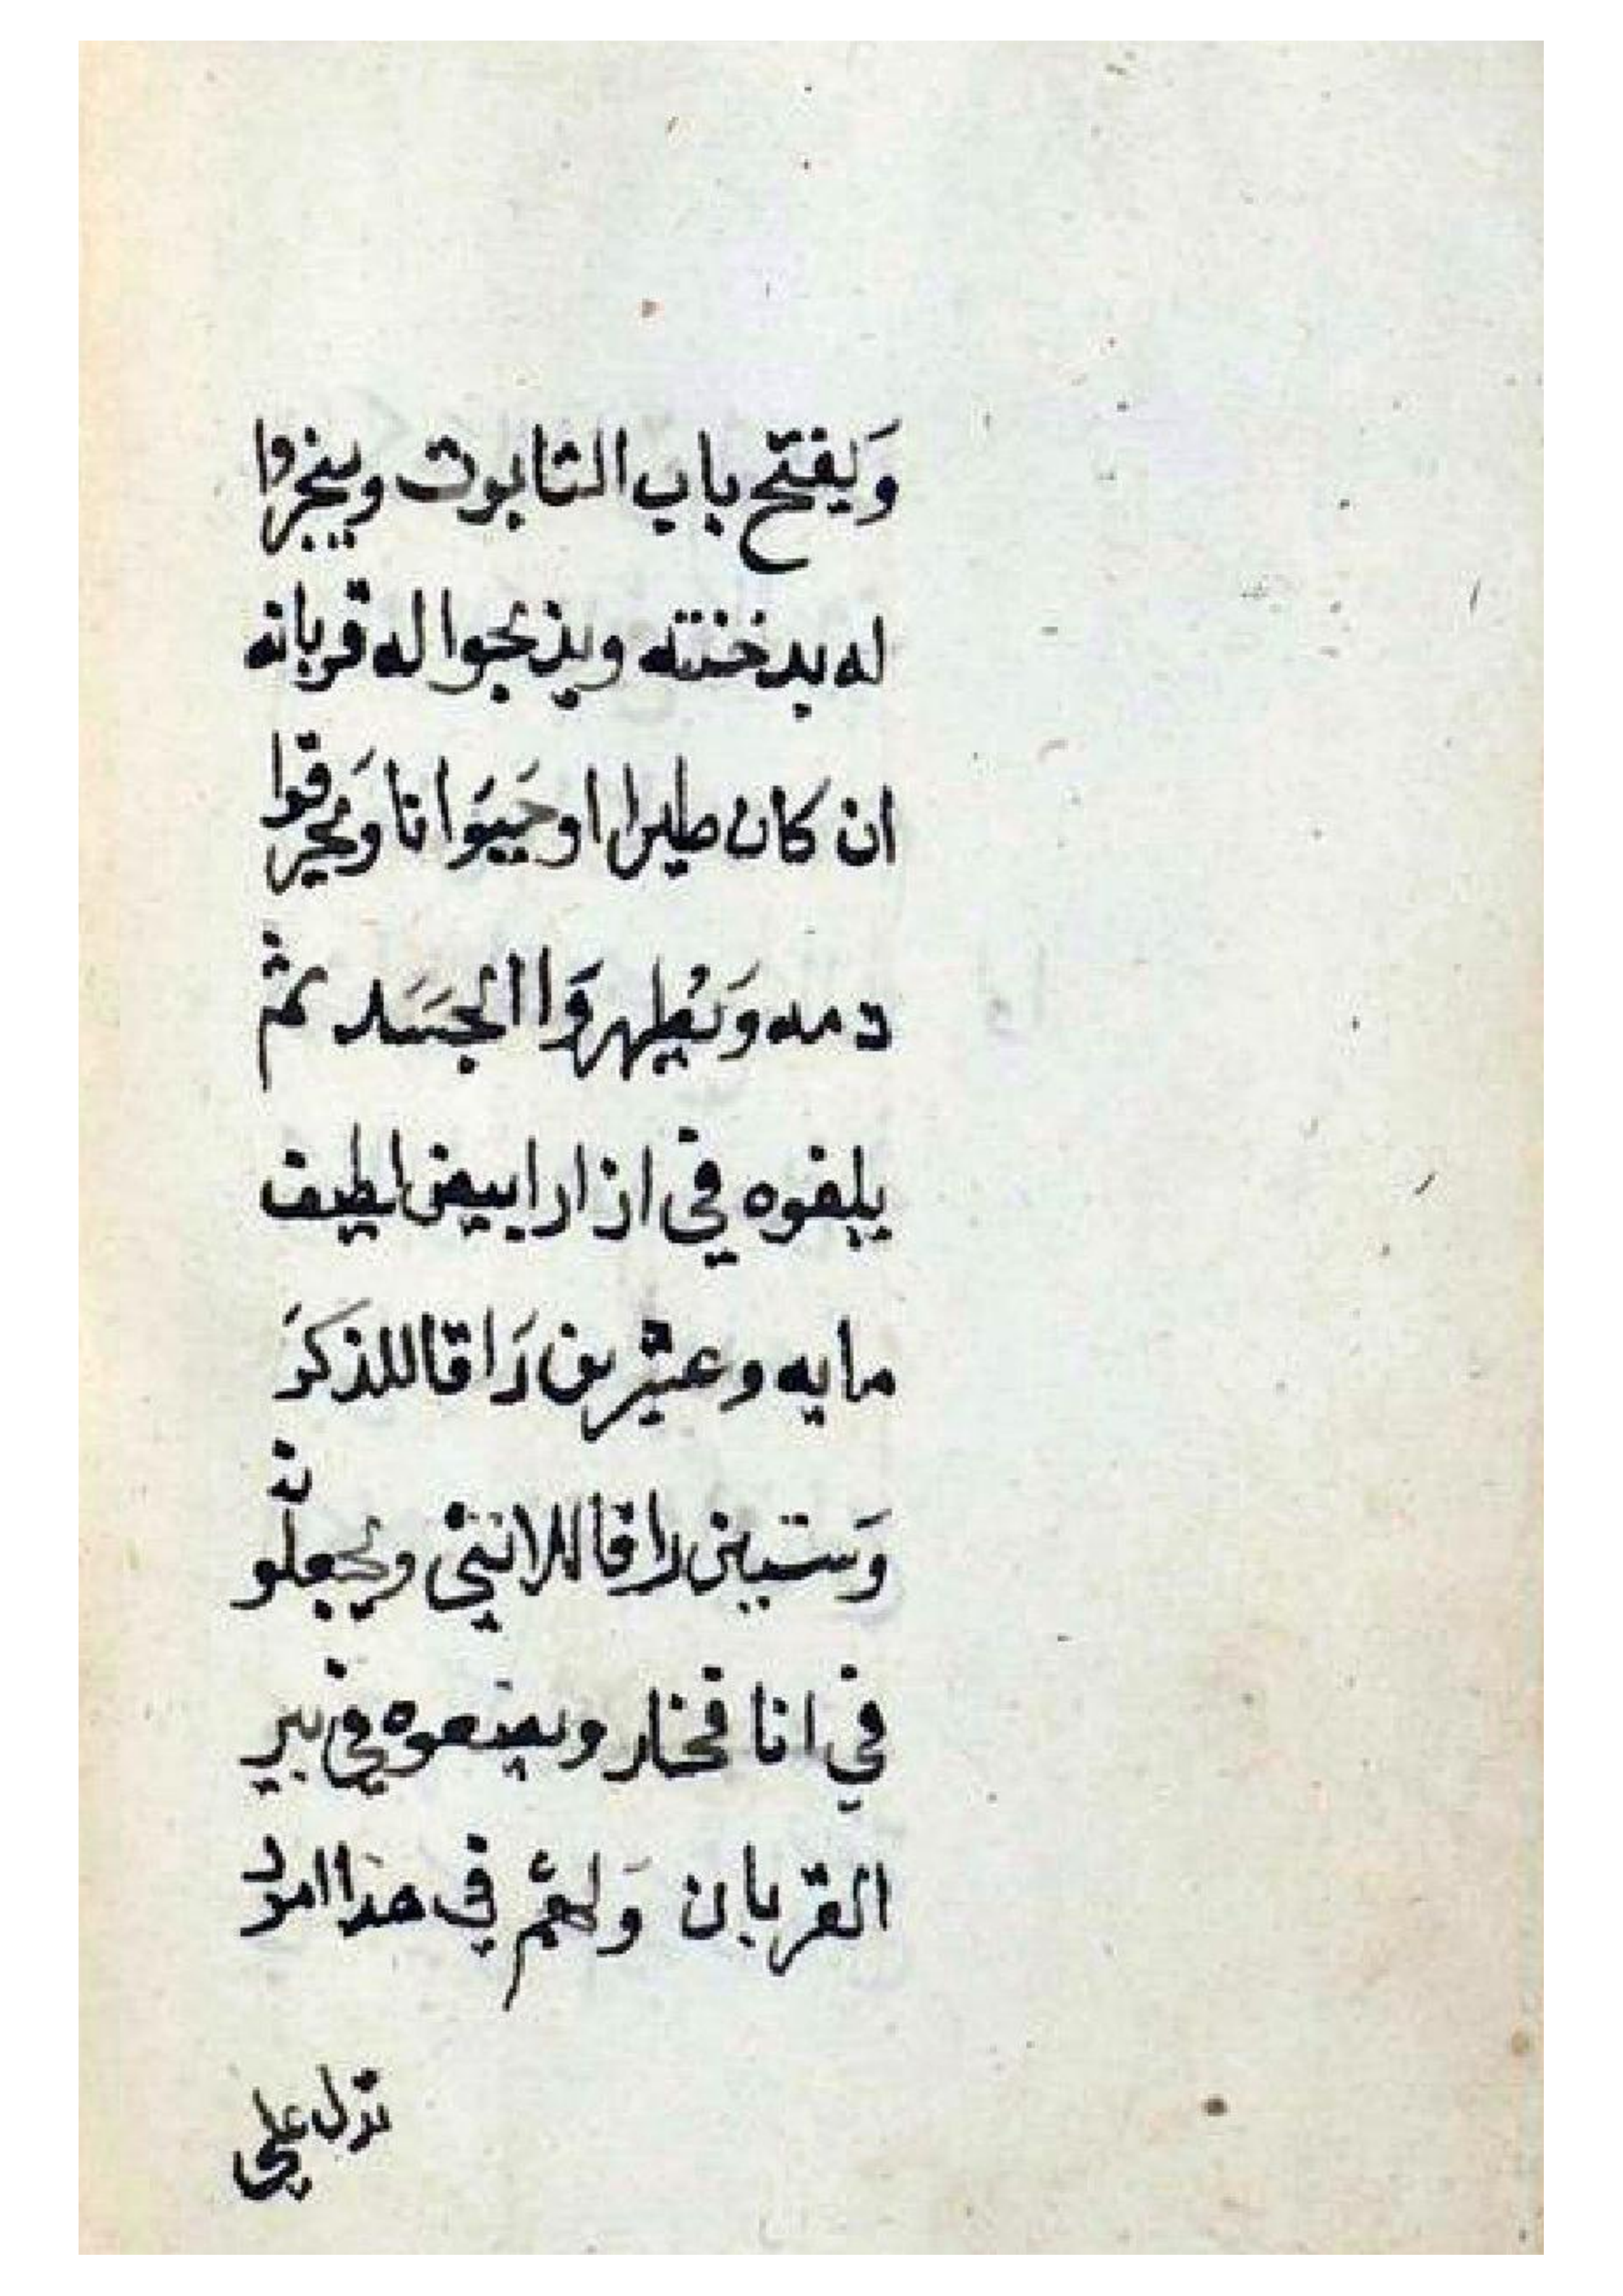 وَيفتح باب التابوت ويبخروا
له بدخنته ويذبحوا له قربانه
ان كان طيرا او حَيَوانا وَيحرقوا
دمه وَيُطهروَا الجسَد ثم
يلفوه في ازار ابيض لطيف
مايه وعشرين رَاقا للذكرَ
وَستين راقا للانثي ويجعلونه
في انا فخار ويضعوه في بير
القربان وَلهم في هذا امورا
نزل علي